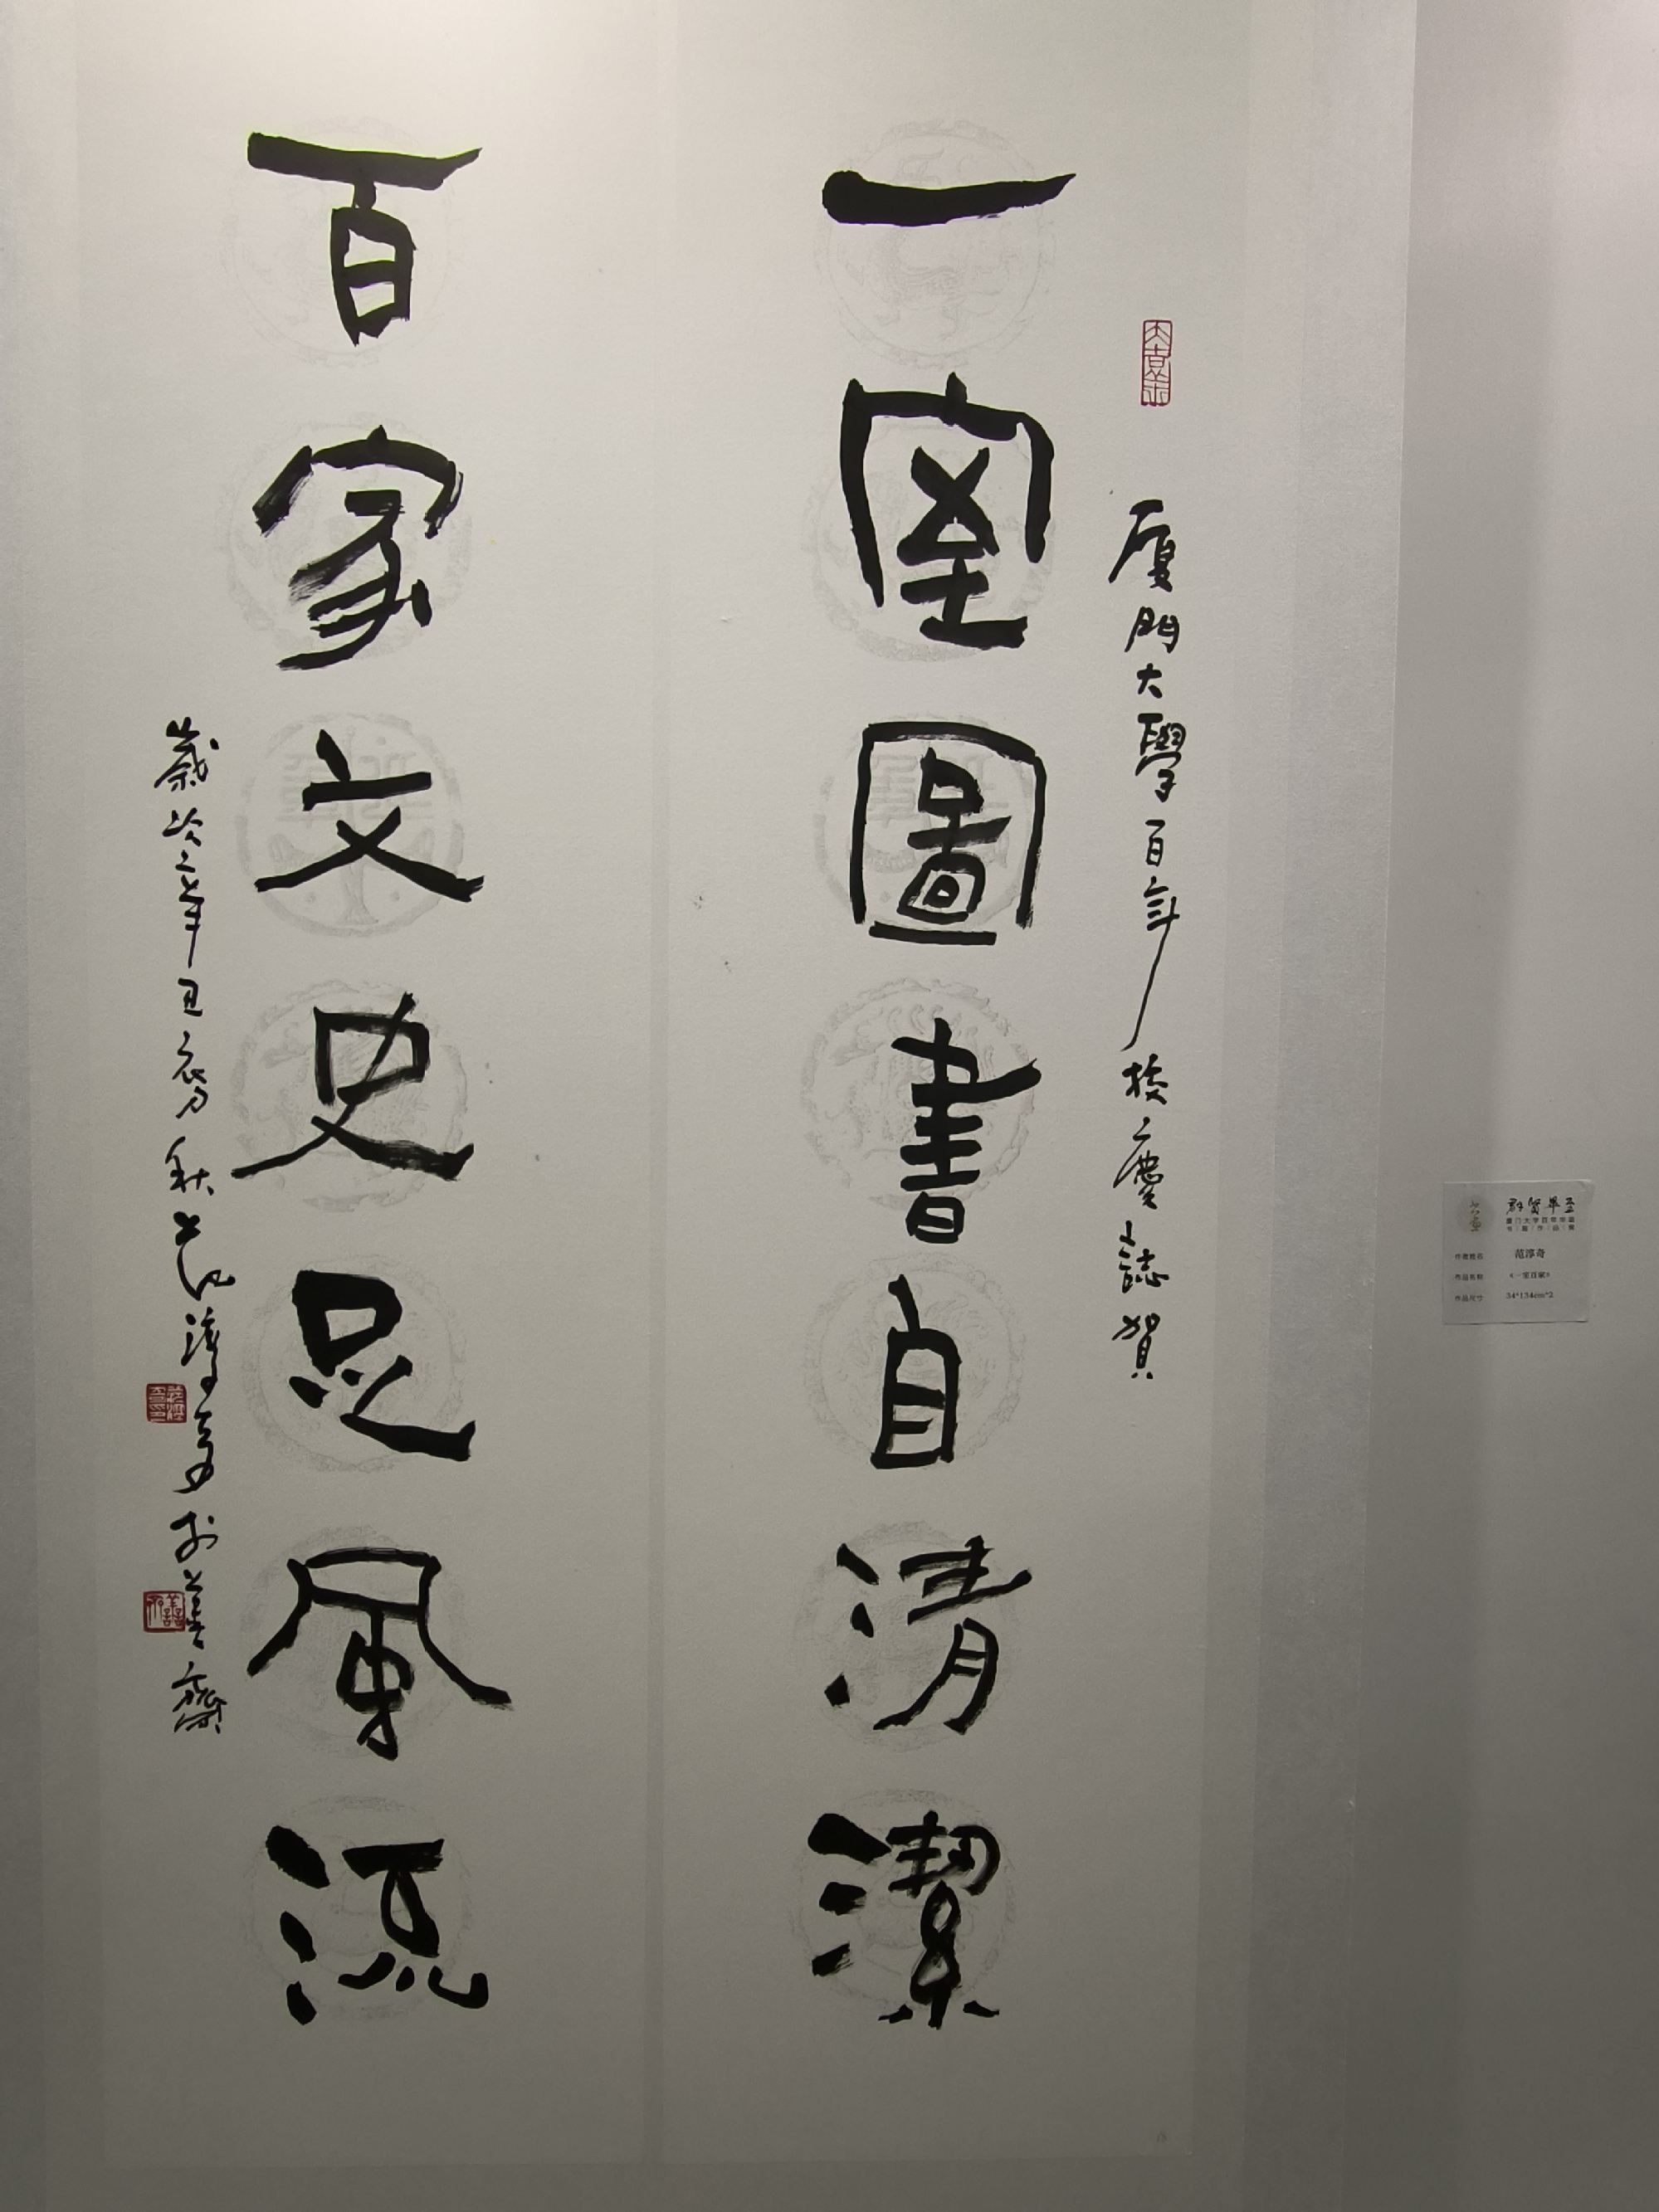 厦門大學百年校慶誌賀
一室圖書自清潔
百家文史足風流
歲次辛丑初秋范淳奇於善齋
群贤毕至
厦门大学百年华诞
书画作品展
作者姓名 范淳奇
作品名称 《一室百家》
作品尺寸 34*134cm*2